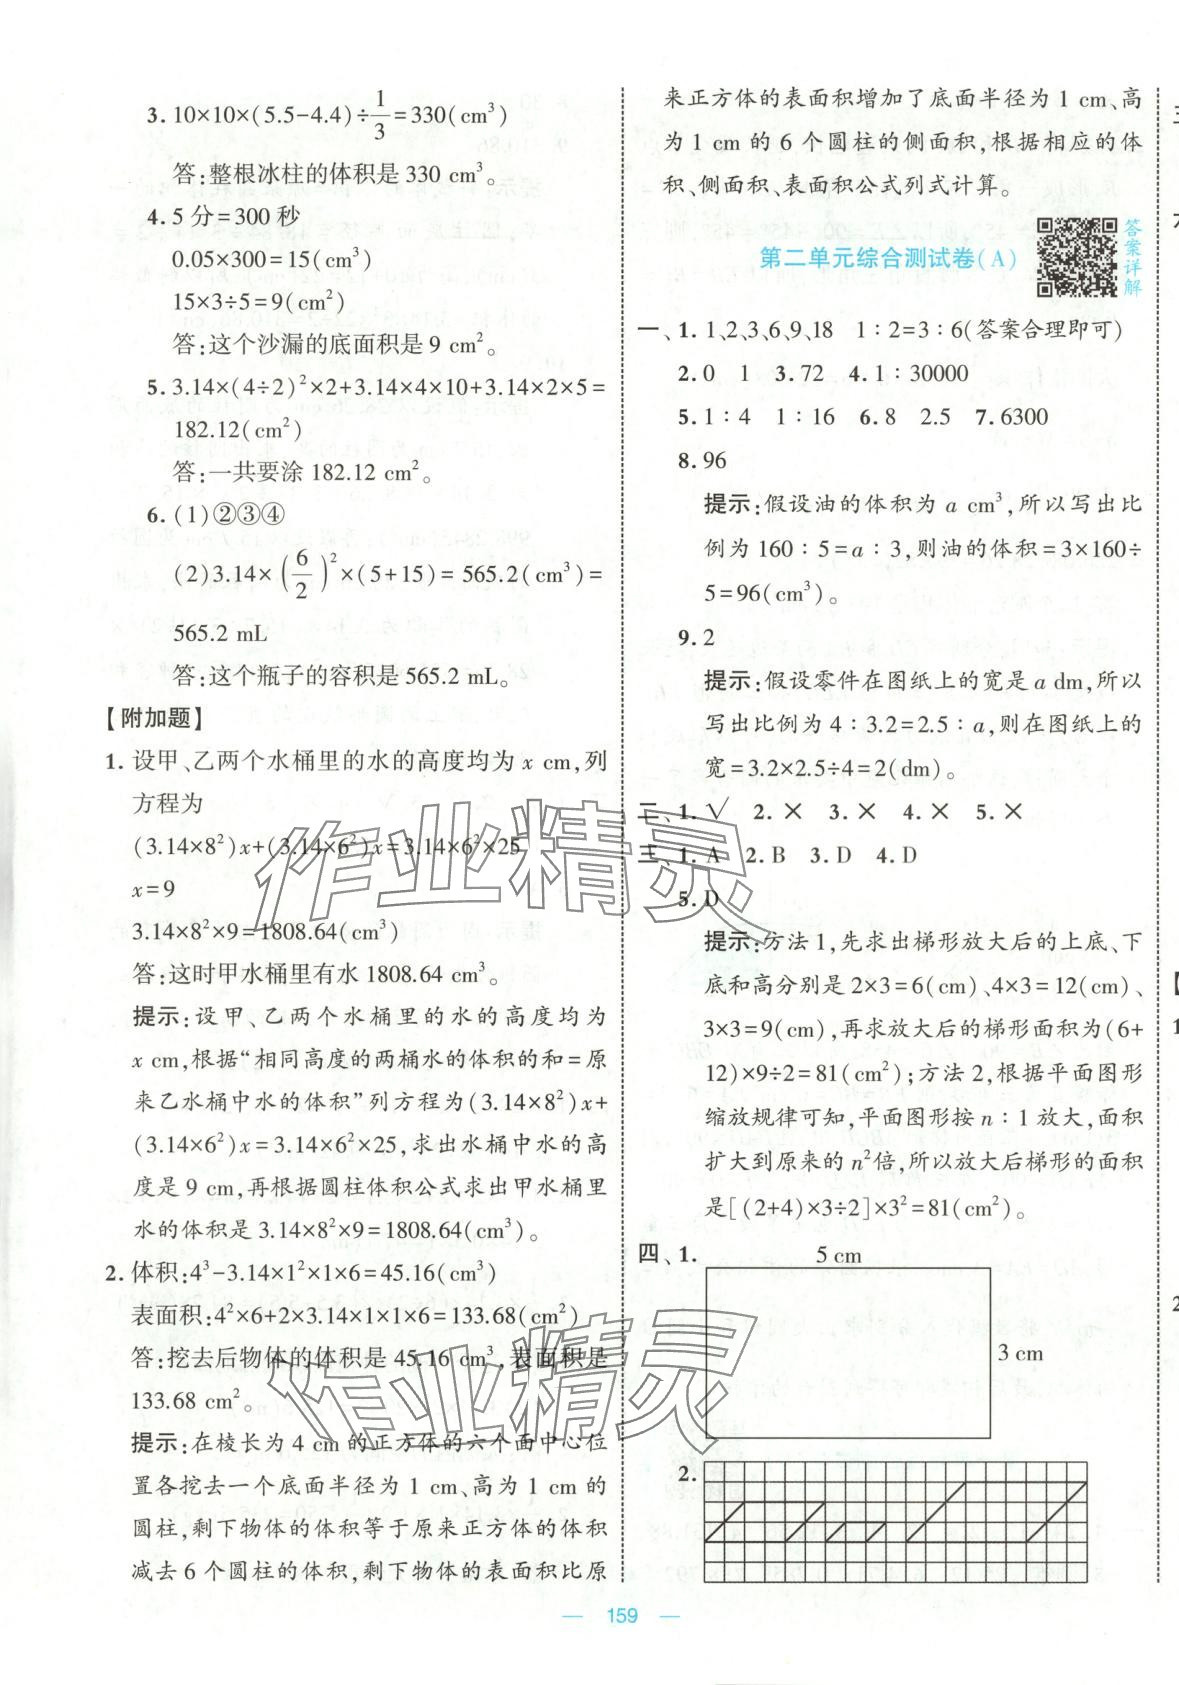 3. 10×10×(5.5-4.4)÷1/3=330(cm³)
答:整根冰柱的体积是 330 cm³。
4. 5分=300秒
0.05×300=15(cm³)
15×3÷5=9(cm²)
答:这个沙漏的底面积是 9 cm²。
5. 3.14×(4÷2)²×2+3.14×4×10+3.14×2×5=
182.12(cm²)
答:一共要涂 182.12 cm²。
6. (1)②③④
(2)3.14×(6/2)²×(5+15)=565.2(cm³)=
565.2 mL
答:这个瓶子的容积是 565.2 mL。
【附加题】
1. 设甲、乙两个水桶里的水的高度均为 x cm,列
方程为
(3.14×8²)x+(3.14×6²)x=3.14×6²×25
x=9
3.14×8²×9=1808.64(cm³)
答:这时甲水桶里有水 1808.64 cm³。
提示:设甲、乙两个水桶里的水的高度均为
x cm,根据“相同高度的两桶水的体积的和=原
来乙水桶中水的体积”列方程为(3.14×8²)x+
(3.14×6²)x=3.14×6²×25,求出水桶中水的高
度是 9 cm,再根据圆柱体积公式求出甲水桶里
水的体积是 3.14×8²×9=1808.64(cm³)。
2. 体积:4³-3.14×1²×1×6=45.16(cm³)
表面积:4²×6+2×3.14×1×1×6=133.68(cm²)
答:挖去后物体的体积是 45.16 cm³,表面积是
133.68 cm²。
提示:在棱长为 4 cm 的正方体的六个面中心位
置各挖去一个底面半径为 1 cm、高为 1 cm 的
圆柱,剩下物体的体积等于原来正方体的体积
减去 6 个圆柱的体积,剩下物体的表面积比原
来正方体的表面积增加了底面半径为 1 cm、高
为 1 cm 的 6 个圆柱的侧面积,根据相应的体
积、侧面积、表面积公式列式计算。
第二单元综合测试卷(A)
答案详解
一、1. 1,2,3,6,9,18 1∶2=3∶6(答案合理即可)
2. 0 1 3. 72 4. 1∶30000
5. 1∶4 1∶16 6. 8 2.5 7. 6300
8. 96
提示:假设油的体积为 a cm³,所以写出比
例为 160∶5=a∶3,则油的体积=3×160÷
5=96(cm³)。
9. 2
提示:假设零件在图纸上的宽是 a dm,所以
写出比例为 4∶3.2=2.5∶a,则在图纸上的
宽=3.2×2.5÷4=2(dm)。
二、1. √ 2. × 3. × 4. × 5. ×
三、1. A 2. B 3. D 4. D
5. D
提示:方法 1,先求出梯形放大后的上底、下
底和高分别是 2×3=6(cm)、4×3=12(cm)、
3×3=9(cm),再求放大后的梯形面积为(6+
12)×9÷2=81(cm²);方法 2,根据平面图形
缩放规律可知,平面图形按 n∶1 放大,面积
扩大到原来的 n²倍,所以放大后梯形的面积
是[(2+4)×3÷2]×3²=81(cm²)。
四、1.
5 cm
3 cm
2.
159
作业精灵
作业精灵